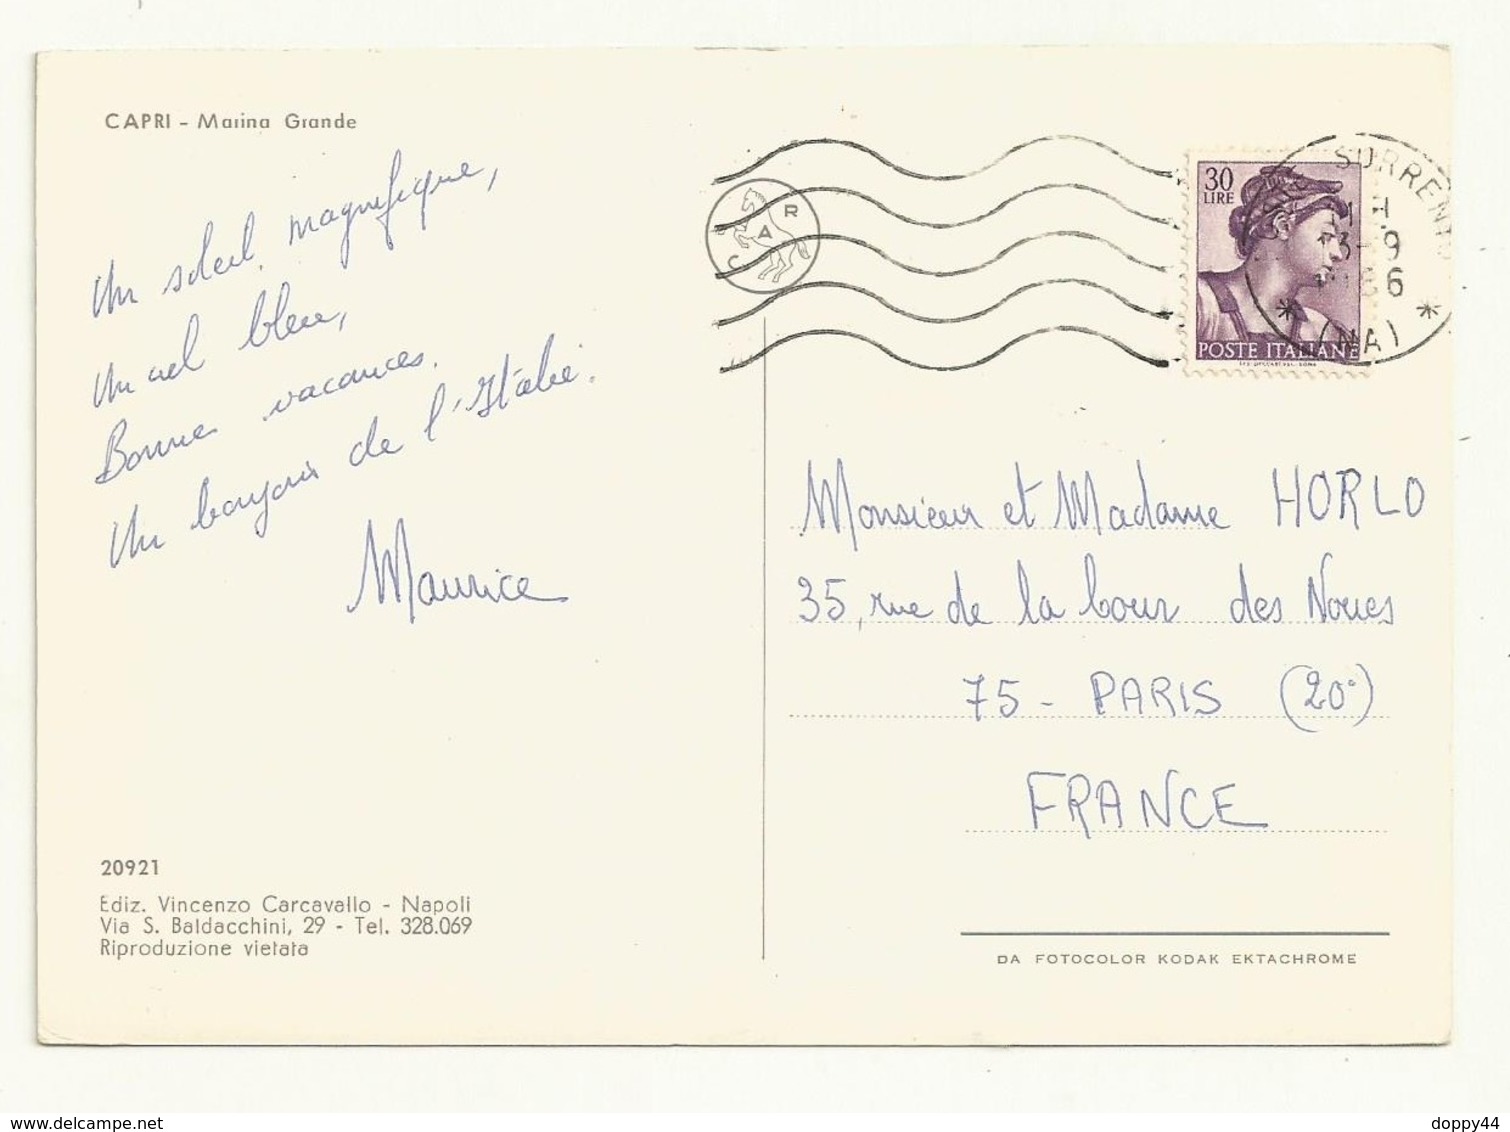 CAPRI - Marina Grande
Un soleil magnifique,
Un ciel bleu,
Bonnes vacances.
Un bonjour de l'Italie.
Maurice
20921
Ediz. Vincenzo Carcavallo - Napoli
Via S. Baldacchini, 29 - Tel. 328.069
Riproduzione vietata
CAR
30
LIRE
POSTE ITALIANE
SORRENTO
3-9
(NA)
Monsieur et Madame HORLO
35, rue de la Cour des Noues
75 - PARIS (20°)
FRANCE
DA FOTOCOLOR KODAK EKTACHROME
www.delcampe.net
doppy44